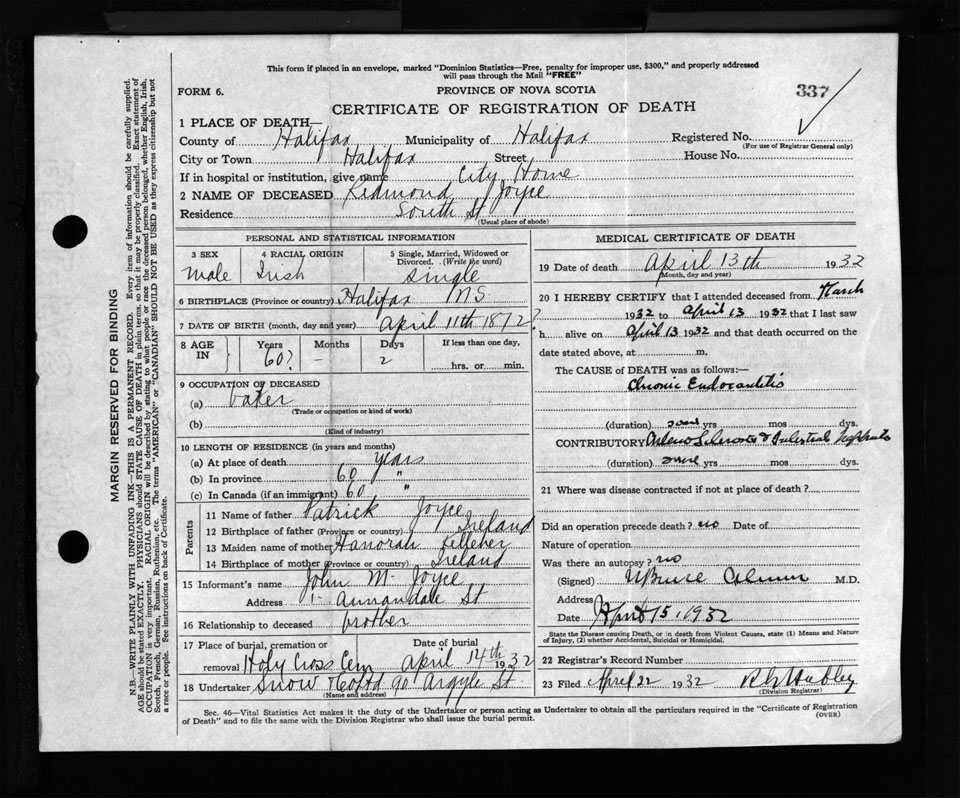 This form if placed in an envelope, marked "Dominion Statistics—Free, penalty for improper use, $300," and properly addressed
will pass through the Mail "FREE"
FORM 6.
PROVINCE OF NOVA SCOTIA
337
CERTIFICATE OF REGISTRATION OF DEATH
1 PLACE OF DEATH—
County of Halifax Municipality of Halifax Registered No.
(For use of Registrar General only)
City or Town Halifax Street House No.
If in hospital or institution, give name City Home
2 NAME OF DECEASED Redmond Joyce
Residence South St
(Usual place of abode)
PERSONAL AND STATISTICAL INFORMATION
3 SEX 4 RACIAL ORIGIN 5 Single, Married, Widowed or
Divorced. (Write the word)
Male Irish Single
6 BIRTHPLACE (Province or country) Halifax N.S.
7 DATE OF BIRTH (month, day and year) April 11th 1872?
8 AGE IN Years Months Days If less than one day.
60? — 2 hrs. or min.
9 OCCUPATION OF DECEASED
(a) baker
(Trade or occupation or kind of work)
(b)
(Kind of industry)
10 LENGTH OF RESIDENCE (in years and months)
(a) At place of death years
(b) In province 60 "
(c) In Canada (if an immigrant) 60 "
Parents
11 Name of father Patrick Joyce
12 Birthplace of father (Province or country) Ireland
13 Maiden name of mother Hanorah Kelleher
14 Birthplace of mother (Province or country) Ireland
15 Informant's name John M. Joyce
Address 1 Annandale St
16 Relationship to deceased brother
17 Place of burial, cremation or Date of burial
removal Holy Cross Cem April 14th 1932
18 Undertaker Snow & Co Ltd 90 Argyle St.
(Name and address)
MEDICAL CERTIFICATE OF DEATH
19 Date of death April 13th 1932
(Month, day and year)
20 I HEREBY CERTIFY that I attended deceased from March
1932 to April 13 1932 that I last saw
h alive on April 13 1932 and that death occurred on
date stated above, at m.
The CAUSE of DEATH was as follows:—
Chronic Endocarditis
(duration) yrs mos dys.
CONTRIBUTORY Arterio Sclerosis & Nephritis
(duration) yrs mos dys.
21 Where was disease contracted if not at place of death?
Did an operation precede death? no Date of
Nature of operation
Was there an autopsy? no
(Signed) Bruce M.D.
Address
Date April 15, 1932
State the Disease causing Death, or in death from Violent Causes, state (1) Means and Nature
of Injury, (2) whether Accidental, Suicidal or Homicidal.
22 Registrar's Record Number
23 Filed April 22 1932
(Division Registrar)
Sec. 46—Vital Statistics Act makes it the duty of the Undertaker or person acting as Undertaker to obtain all the particulars required in the "Certificate of Registration
of Death" and to file the same with the Division Registrar who shall issue the burial permit.
(OVER)
MARGIN RESERVED FOR BINDING
N.B.—WRITE PLAINLY WITH UNFADING INK—THIS IS A PERMANENT RECORD. Every item of information should be carefully supplied.
AGE should be stated EXACTLY. PHYSICIANS should STATE CAUSE OF DEATH in plain terms, so that it may be properly classified. Exact statement of
OCCUPATION is very important. RACIAL ORIGIN will be described by stating to what people or race the deceased person belonged, whether English, Irish,
Scotch, French, German, Russian, Ruthenian, etc. The terms "AMERICAN" or "CANADIAN" SHOULD NOT BE USED as they express citizenship but not
a race or people. See instructions on back of Certificate.